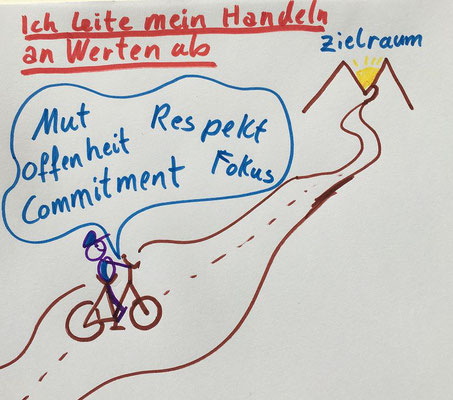 Ich leite mein Handeln
an Werten ab
Zielraum
Mut Respekt
Offenheit Fokus
Commitment